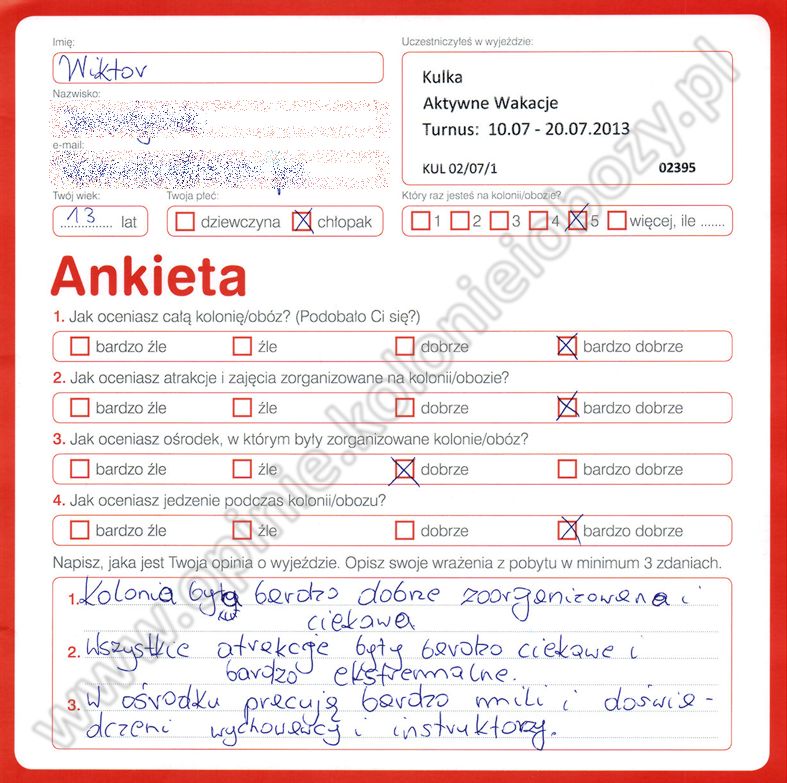 Imię:
Wiktor
Uczestniczyłeś w wyjeździe:
Kulka
Aktywne Wakacje
Turnus: 10.07 - 20.07.2013
KUL 02/07/1 02395
Nazwisko:
e-mail:
Twój wiek:
13 lat
Twoja płeć:
dziewczyna chłopak
Który raz jesteś na kolonii/obozie?
1 2 3 4 5 więcej, ile .......
Ankieta
1. Jak oceniasz całą kolonię/obóz? (Podobało Ci się?)
bardzo źle źle dobrze bardzo dobrze
2. Jak oceniasz atrakcje i zajęcia zorganizowane na kolonii/obozie?
bardzo źle źle dobrze bardzo dobrze
3. Jak oceniasz ośrodek, w którym były zorganizowane kolonie/obóz?
bardzo źle źle dobrze bardzo dobrze
4. Jak oceniasz jedzenie podczas kolonii/obozu?
bardzo źle źle dobrze bardzo dobrze
Napisz, jaka jest Twoja opinia o wyjeździe. Opisz swoje wrażenia z pobytu w minimum 3 zdaniach.
1. Kolonia była bardzo dobrze zoorganizowana i
ciekawa
2. Wszystkie atrakcje były bardzo ciekawe i
bardzo ekstremalne.
3. W ośrodku pracują bardzo mili i doświa-
dczeni wychowawcy i instruktorzy.
www.opinie.kolonieiobozy.pl